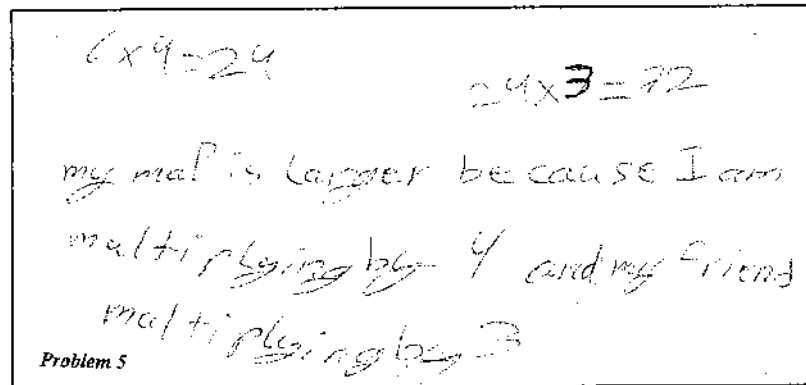 6x4=24
24x3=72
my map is Larger because I am
multiplying by 4 and my friend
multiplying by 3
Problem 5